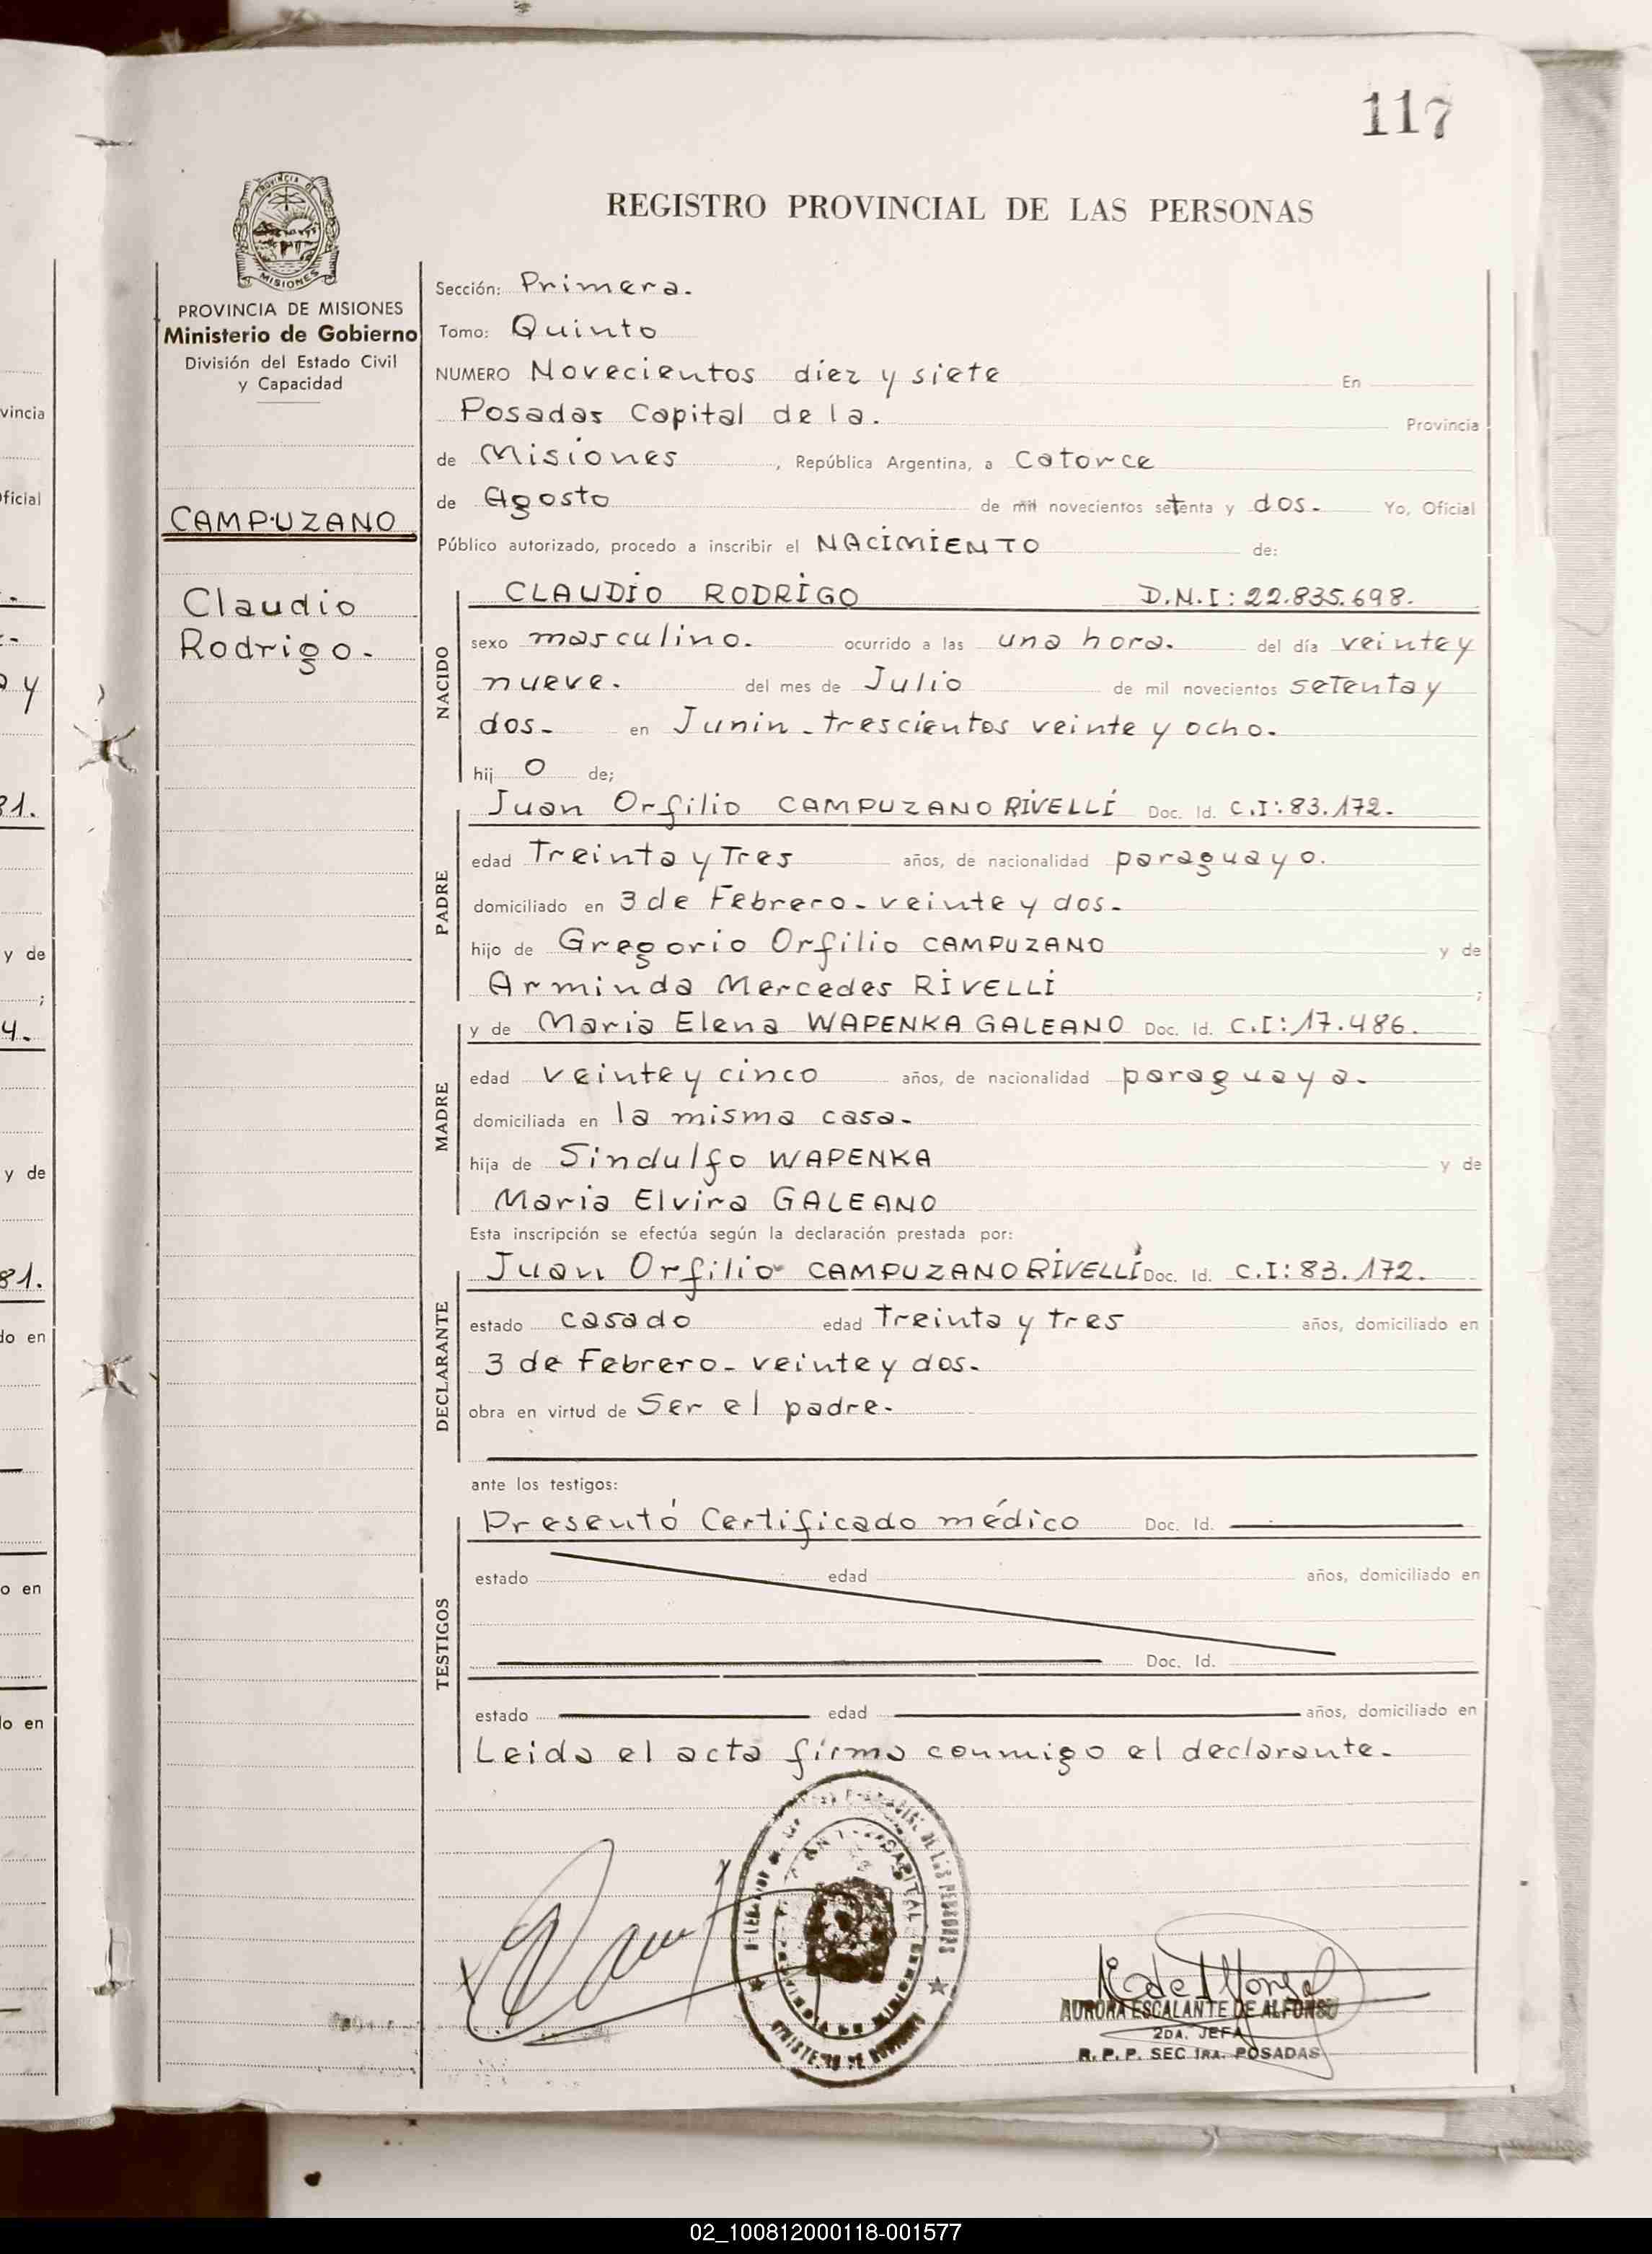 117
PROVINCIA DE
MISIONES
REGISTRO PROVINCIAL DE LAS PERSONAS
PROVINCIA DE MISIONES
Ministerio de Gobierno
División del Estado Civil
y Capacidad
CAMPUZANO
Claudio
Rodrigo-
Sección: Primera.
Tomo: Quinto
NUMERO Novecientos diez y siete En
Posadas Capital de la. Provincia
de Misiones, República Argentina, a catorce
de Agosto de mil novecientos setenta y dos. Yo, Oficial
Público autorizado, procedo a inscribir el NACIMIENTO de:
NACIDO
CLAUDIO RODRIGO D.N.I: 22.835.698.
sexo masculino. ocurrido a las una hora. del día veinte y
nueve. del mes de Julio de mil novecientos setenta y
dos- en Junin - trescientos veinte y ocho.
hij o de;
PADRE
Juan Orfilio CAMPUZANO RIVELLI Doc. Id. C.I: 83.172.
edad Treinta y Tres años, de nacionalidad paraguayo.
domiciliado en 3 de Febrero - veinte y dos-
hijo de Gregorio Orfilio CAMPUZANO y de
Arminda Mercedes RIVELLI ;
MADRE
y de Maria Elena WAPENKA GALEANO Doc. Id. C.I: 17.486.
edad veinte y cinco años, de nacionalidad paraguaya-
domiciliada en la misma casa-
hija de Sindulfo WAPENKA y de
Maria Elvira GALEANO
Esta inscripción se efectúa según la declaración prestada por:
DECLARANTE
Juan Orfilio CAMPUZANO RIVELLI Doc. Id. C.I: 83.172.
estado casado edad Treinta y tres años, domiciliado en
3 de Febrero - veinte y dos-
obra en virtud de Ser el padre-
ante los testigos:
TESTIGOS
Presentó Certificado médico Doc. Id.
estado edad años, domiciliado en
Doc. Id.
estado edad años, domiciliado en
Leida el acta firma conmigo el declarante-
AURORA ESCALANTE DE ALFONSO
2DA. JEFA
R. P. P. SEC 1RA. POSADAS
vincia
oficial
y
81.
y de
;
4.
y de
81.
do en
o en
do en
02_100812000118-001577